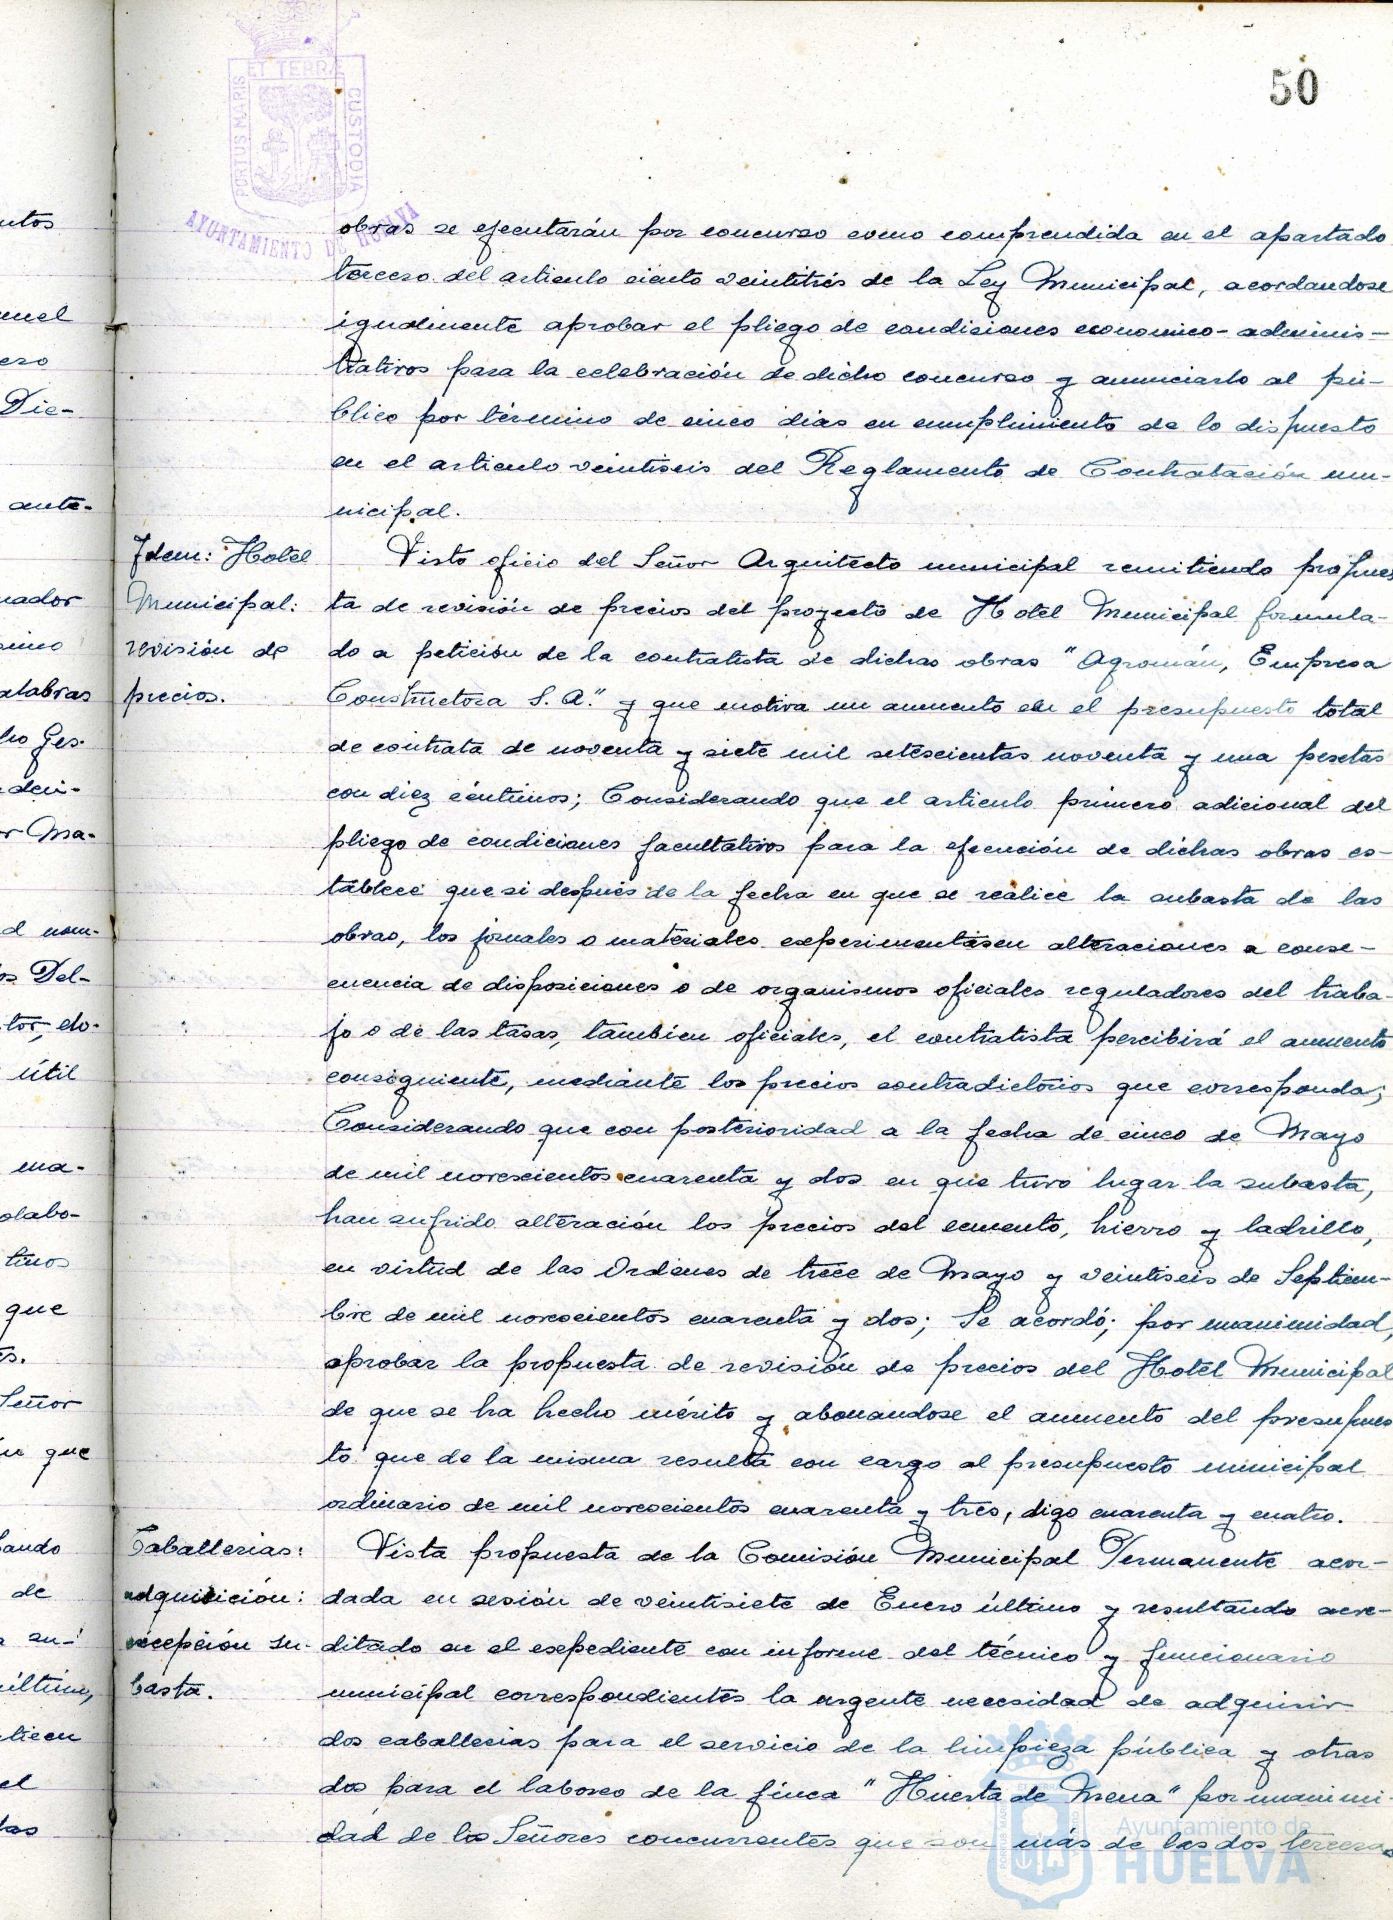 50
ET TERRÆ
PORTUS MARIS
CUSTODIA
AYUNTAMIENTO DE HUELVA
obras se ejecutarán por concurso como comprendida en el apartado
tercero del articulo ciento veintitrés de la Ley Municipal, acordandose
igualmente aprobar el pliego de condiciones economico-adminis-
trativos para la celebración de dicho concurso y anunciarlo al pú-
blico por término de cinco dias en cumplimiento de lo dispuesto
en el articulo veintiseis del Reglamento de Contratación mu-
nicipal.
Idem: Hotel
Municipal:
revisión de
precios.
Visto oficio del Señor Arquitecto municipal remitiendo propues
ta de revisión de precios del proyecto de Hotel Municipal formula-
do a petición de la contratista de dichas obras "Agromán, Empresa
Constructora S.A." y que motiva un aumento en el presupuesto total
de contrata de noventa y siete mil setescientas noventa y una pesetas
con diez céntimos; Considerando que el articulo primero adicional del
pliego de condiciones facultativos para la ejecución de dichas obras es-
tablece que si después de la fecha en que se realice la subasta de las
obras, los jornales o materiales experimentasen alteraciones a conse-
cuencia de disposiciones o de organismos oficiales reguladores del traba-
jo o de las tasas, tambien oficiales, el contratista percibirá el aumento
consiguiente, mediante los precios contradictorios que corresponda;
Considerando que con posterioridad a la fecha de cinco de Mayo
de mil novescientos cuarenta y dos en que tuvo lugar la subasta,
han sufrido alteración los precios del cemento, hierro y ladrillo,
en virtud de las Ordenes de trece de Mayo y veintiseis de Septiem-
bre de mil novecientos cuarenta y dos; Se acordó, por unanimidad,
aprobar la propuesta de revisión de precios del Hotel Municipal
de que se ha hecho mérito y abonandose el aumento del presupues
to que de la misma resulta con cargo al presupuesto municipal
ordinario de mil novecientos cuarenta y tres, digo cuarenta y cuatro.
Caballerias:
adquisición:
excepción su-
basta.
Vista propuesta de la Comisión Municipal Permanente acor-
dada en sesión de veintisiete de Enero último y resultando acre-
ditado en el expediente con informe del técnico y funcionario
municipal correspondientes la urgente necesidad de adquirir
dos caballerias para el servicio de la limpieza pública y otras
dos para el laboreo de la finca "Huerta de Mena" por unanimi-
dad de los Señores concurrentes que son más de las dos terceras
Ayuntamiento de
HUELVA